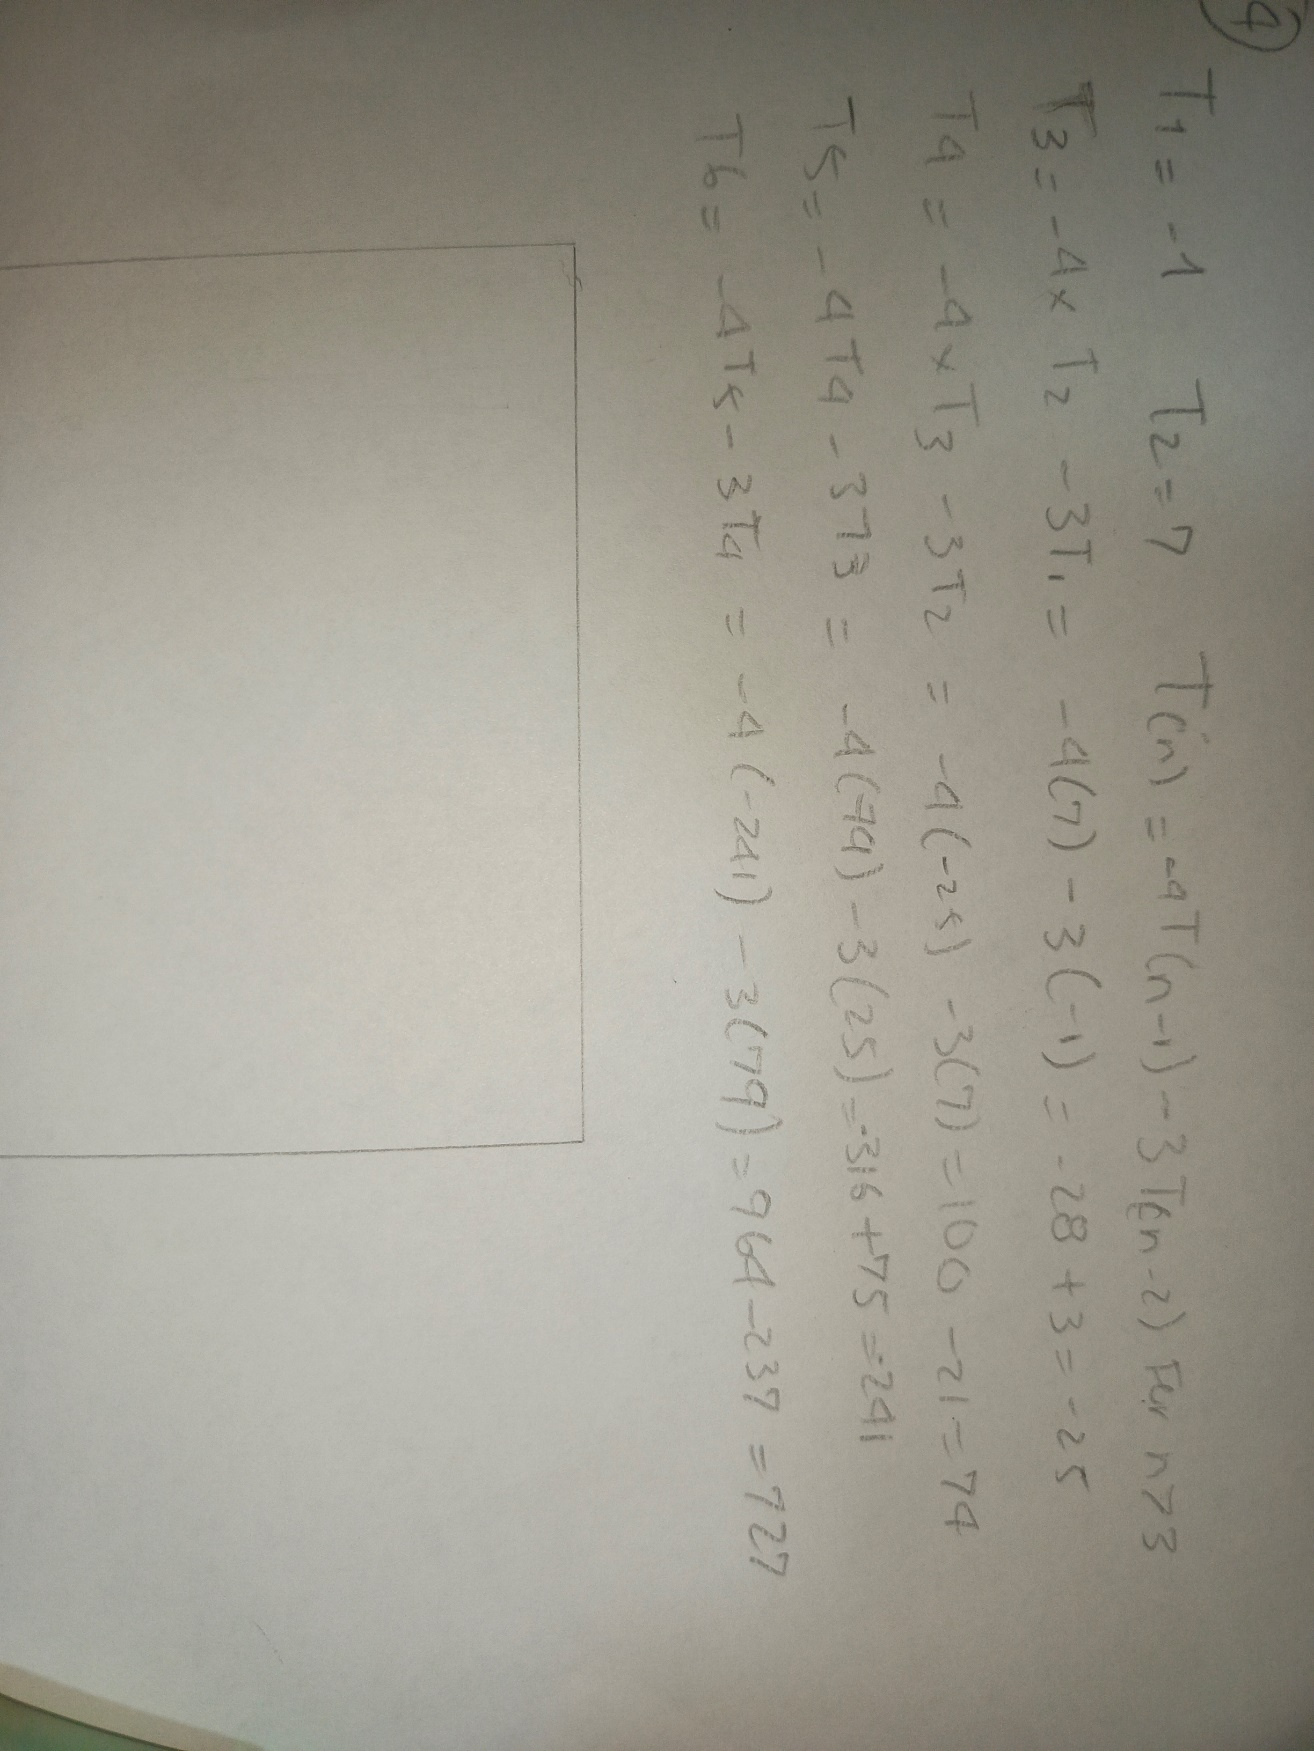 4
T1 = -1 T2 = 7 T(n) = -4T(n-1) - 3T(n-2) For n>3
T3 = -4 x T2 - 3T1 = -4(7) - 3(-1) = -28 + 3 = -25
T4 = -4 x T3 - 3T2 = -4(-25) - 3(7) = 100 - 21 = 79
T5 = -4T4 - 3T3 = -4(79) - 3(25) = -316 + 75 = -241
T6 = -4T5 - 3T4 = -4(-241) - 3(79) = 964 - 237 = 727